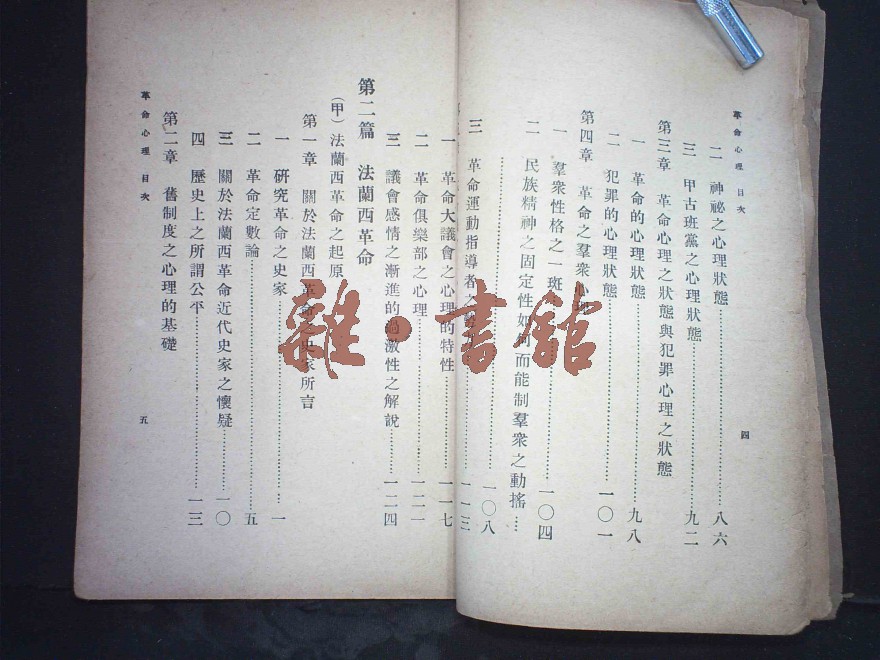 革命心理 目次
二 神祕之心理狀態 八六
三 甲古班黨之心理狀態 九二
第三章 革命心理之狀態與犯罪心理之狀態
一 革命的心理狀態 九八
二 犯罪的心理狀態 一〇一
第四章 革命之羣衆心理
一 羣衆性格之一斑 一〇四
二 民族精神之固定性如何而能制羣衆之動搖
一〇八
三 革命運動指導者之 一一三
四
一 革命大議會之心理的特性 一一七
二 革命俱樂部之心理 一二一
三 議會感情之漸進的過激性之解說 一二四
第二篇 法蘭西革命
(甲)法蘭西革命之起原
第一章 關於法蘭西革命之史家所言
一 研究革命之史家 一
二 革命定數論 五
三 關於法蘭西革命近代史家之懷疑 一〇
四 歷史上之所謂公平 一三
第二章 舊制度之心理的基礎
革命心理 目次
五
雜·書館